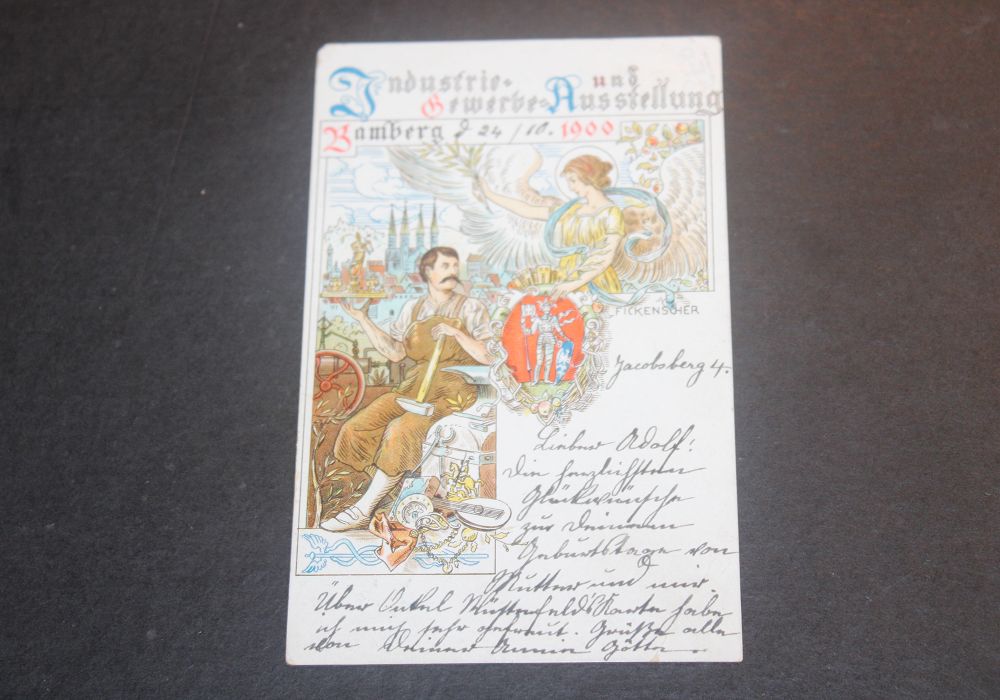 Industrie- und
Gewerbe-Ausstellung
Bamberg d 24/10. 1900
FICKENSCHER
Jacobsberg 4.
Lieber Adolf!
Die herzlichsten
Glückwünsche
zur Deinem
Geburtstage von
Mutter und mir.
Über Onkel Karte habe
ich mich sehr gefreut. Grüße alle
von Deiner